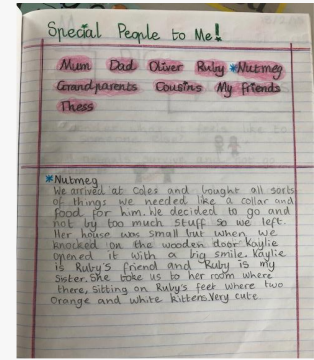 Special People to Me!
Mum Dad Oliver Ruby *Nutmeg
Grandparents Cousins My friends
Thess
*Nutmeg
We arrived at Coles and bought all sorts
of things we needed like a collar and
food for him. We decided to go and
not by too much stuff so we left.
Her house was small but when we
knocked on the wooden door Kaylie
opened it with a big smile. Kaylie
is Ruby's friend and Ruby is my
sister. She toke us to her room where
there, sitting on Ruby's feet where two
Orange and white kittens. Very cute